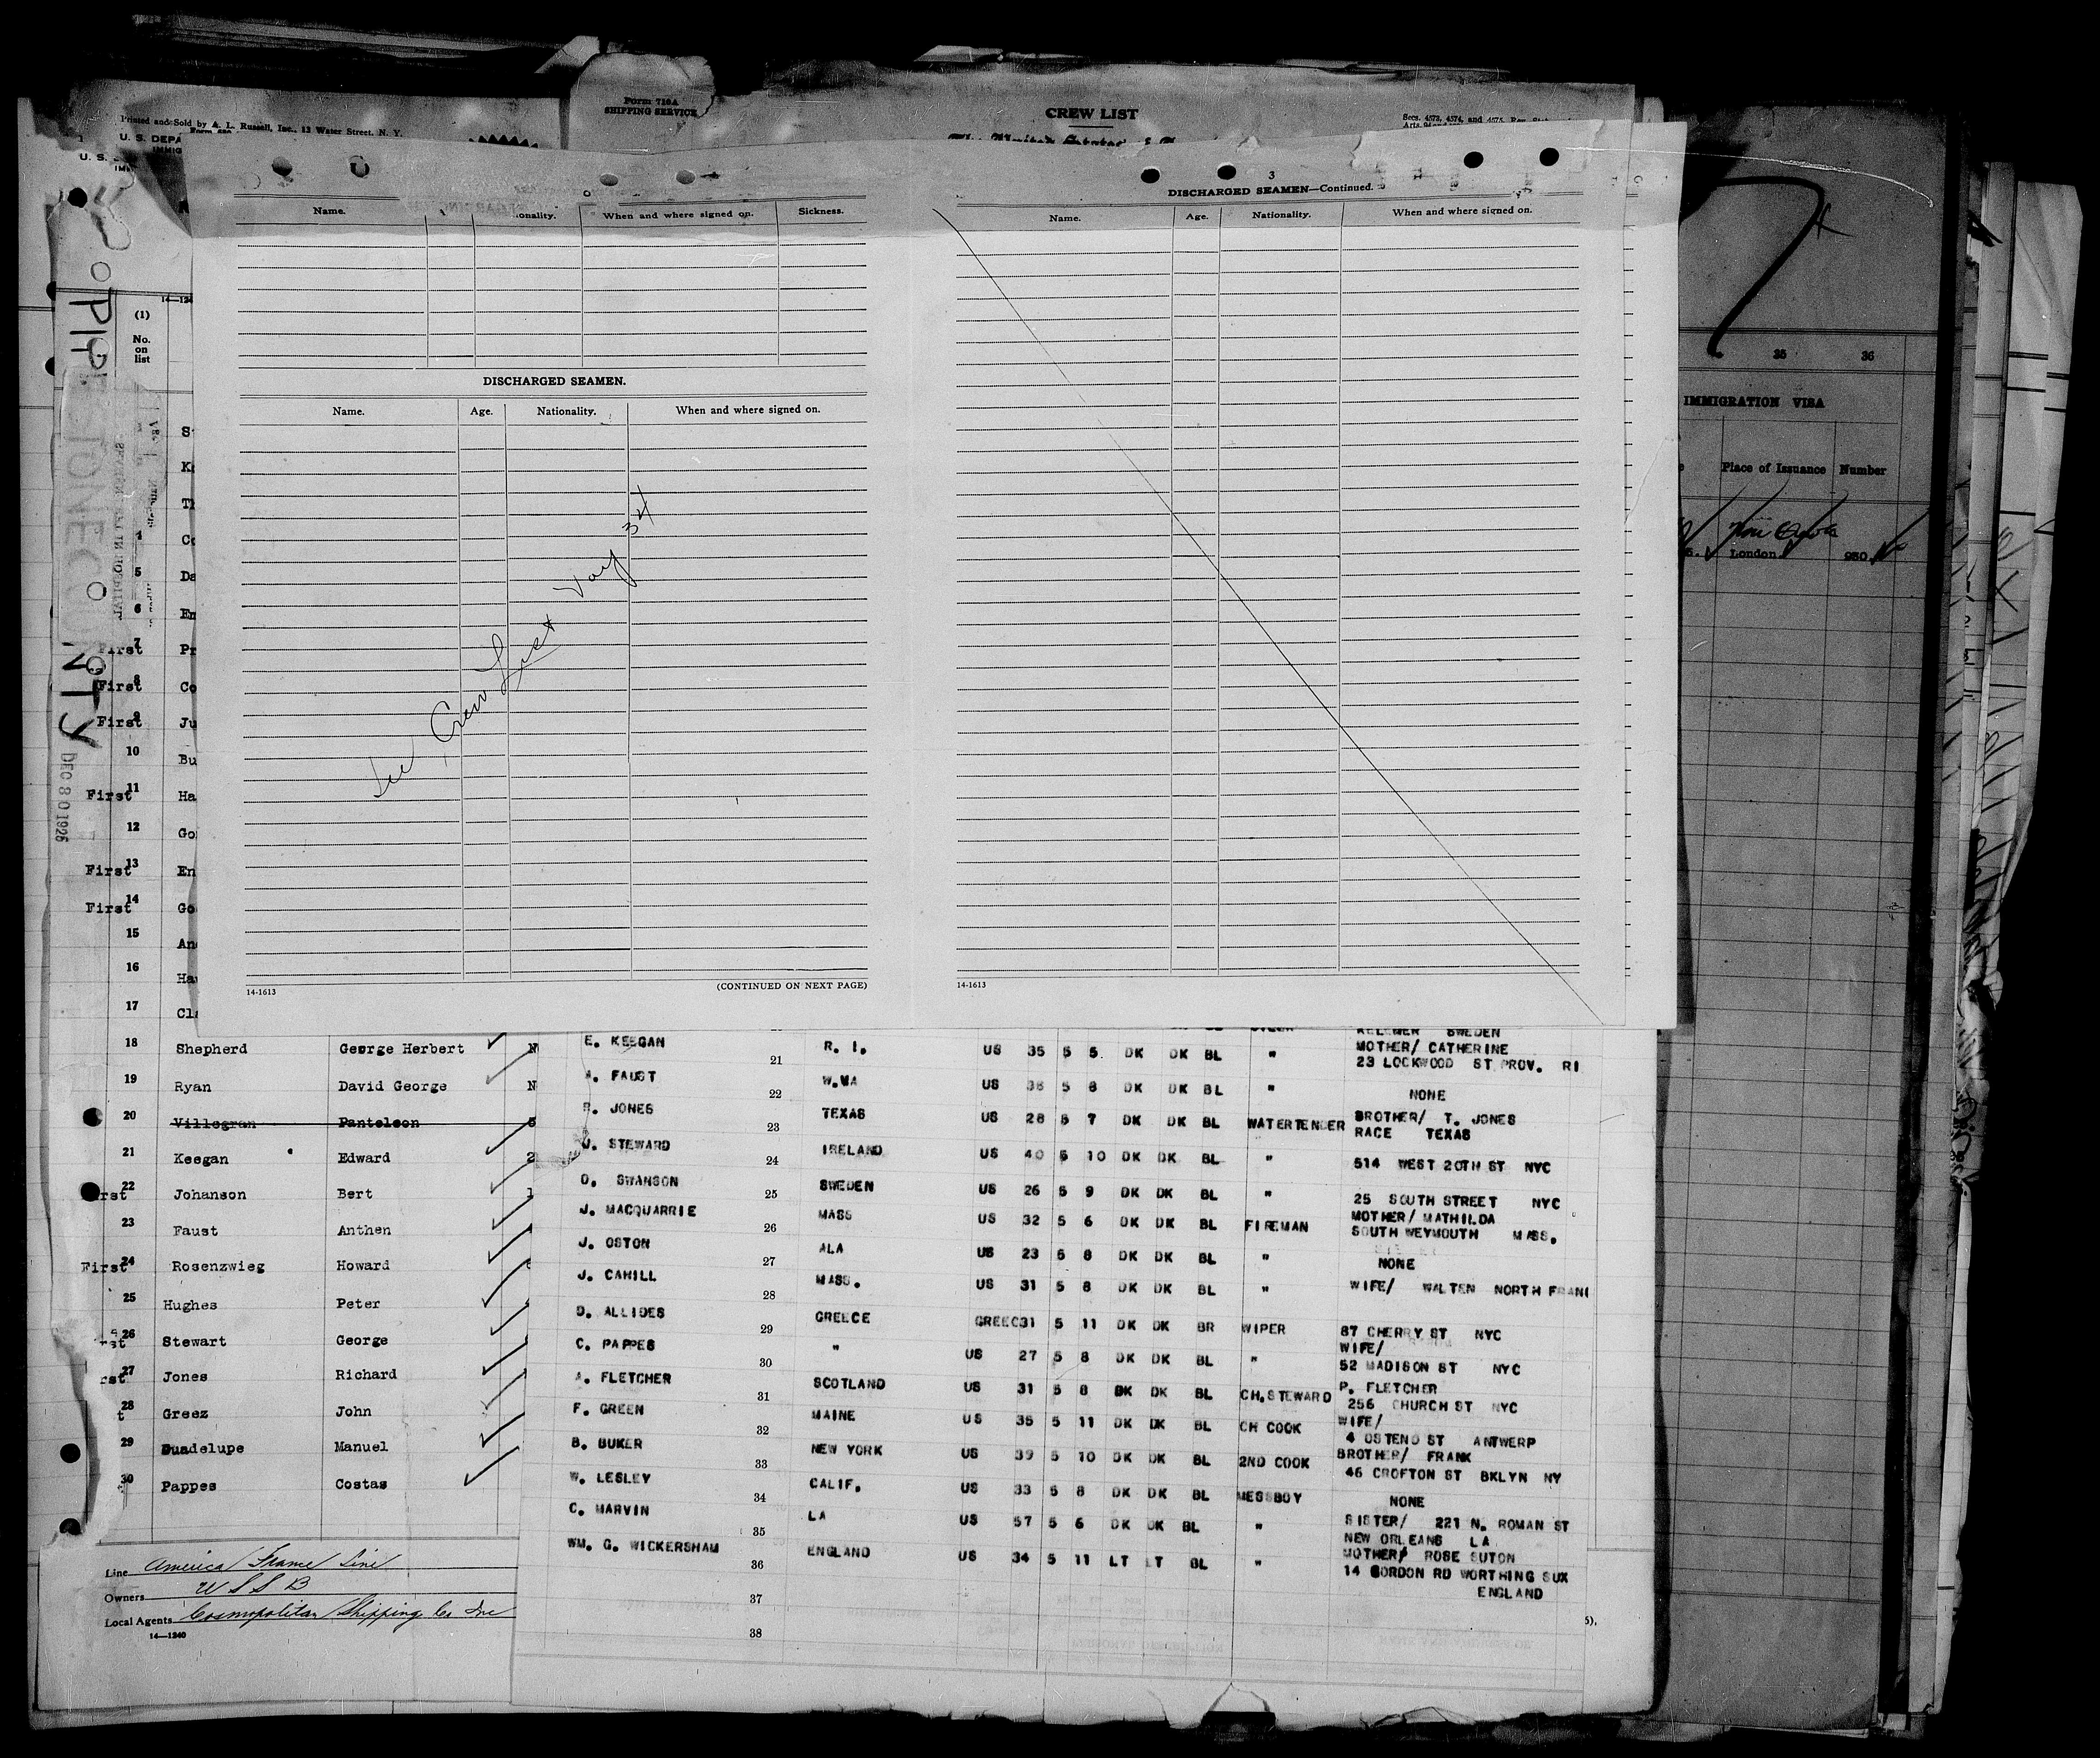 Form 710A
SHIPPING SERVICE
CREW LIST
Printed and Sold by A. L. Russell, Inc., 12 Water Street, N. Y.
Secs. 4573, 4574, and 4575, Rev.
U. S. DEPA
U. S.
3
DISCHARGED SEAMEN—Continued.
Name.
onality.
When and where signed on.
Sickness.
Name.
Age.
Nationality.
When and where signed on.
DISCHARGED SEAMEN.
Name.
Age.
Nationality.
When and where signed on.
See Crew List Voy 34
14-1613
(CONTINUED ON NEXT PAGE)
14-1613
35 36
IMMIGRATION VISA
Place of Issuance Number
London 930
(1)
No.
on
list
PIPESTONE COUNTY
4 Co
5 Da
6 En
First 7 Pr
First 8 Co
First 9 Ju
10 Bu
First 11 Ha
12 Go
First 13 En
First 14 Go
15 An
16 Ha
17 Cla
18 Shepherd George Herbert N
19 Ryan David George N
20 Villegran Panteleon
21 Keegan Edward 2
rst 22 Johanson Bert
23 Faust Anthen
First 24 Rosenzwieg Howard
25 Hughes Peter
26 Stewart George
rst 27 Jones Richard
t 28 Greez John
29 Guadelupe Manuel
30 Pappes Costas
Line America France Line
Owners U S S B
Local Agents Cosmopolitan Shipping Co Inc
14—1240
SWEDEN
E. KEEGAN 21 R. I. US 35 5 5 DK DK BL " MOTHER/ CATHERINE
23 LOCKWOOD ST PROV. RI
A. FAUST 22 W.VA US 38 5 8 DK DK BL " NONE
R. JONES 23 TEXAS US 28 5 7 DK DK BL WATERTENDER BROTHER/ T. JONES
RACE TEXAS
J. STEWARD 24 IRELAND US 40 5 10 DK DK BL " 514 WEST 20TH ST NYC
O. SWANSON 25 SWEDEN US 26 5 9 DK DK BL " 25 SOUTH STREET NYC
J. MACQUARRIE 26 MASS US 32 5 6 DK DK BL FIREMAN MOTHER/ MATHILDA
SOUTH WEYMOUTH MASS.
J. OSTON 27 ALA US 23 5 8 DK DK BL " NONE
J. CAHILL 28 MASS. US 31 5 8 DK DK BL " WIFE/ WALTEN NORTH FRANC
D. ALLIDES 29 GREECE GREEC31 5 11 DK DK BR WIPER 87 CHERRY ST NYC
C. PAPPES 30 " US 27 5 8 DK DK BL " WIFE/
52 MADISON ST NYC
A. FLETCHER 31 SCOTLAND US 31 5 8 DK DK BL CH.STEWARD P. FLETCHER
256 CHURCH ST NYC
F. GREEN 32 MAINE US 35 5 11 DK DK BL CH COOK WIFE/
4 OSTEND ST ANTWERP
B. BUKER 33 NEW YORK US 39 5 10 DK DK BL 2ND COOK BROTHER/ FRANK
46 CROFTON ST BKLYN NY
W. LESLEY 34 CALIF. US 33 5 8 DK DK BL MESSBOY NONE
C. MARVIN 35 LA US 57 5 6 DK DK BL " SISTER/ 221 N. ROMAN ST
NEW ORLEANS LA
WM. G. WICKERSHAM 36 ENGLAND US 34 5 11 LT LT BL " MOTHER/ ROSE SUTON
14 GORDON RD WORTHING SUX
ENGLAND
37
38